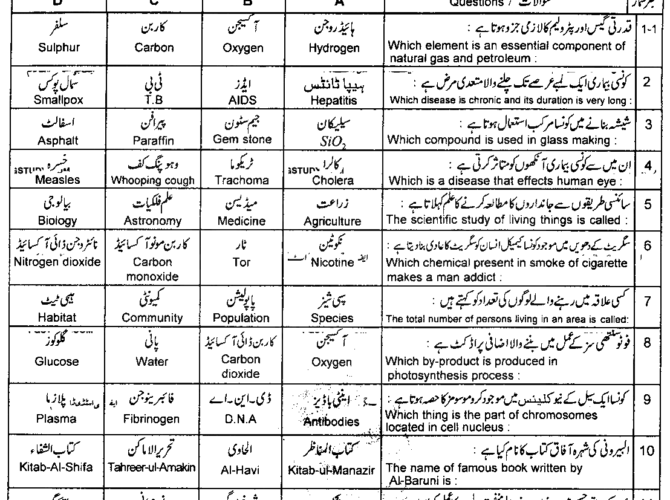 Questions / سوالات
A
B
C
D
1-1
قدرتی گیس اور پٹرولیم کا لازمی جزو ہوتا ہے :
Which element is an essential component of
natural gas and petroleum :
ہائیڈروجن
Hydrogen
آکسیجن
Oxygen
کاربن
Carbon
سلفر
Sulphur
2
کونسی بیماری ایک لمبے عرصے تک چلنے والا متعدی مرض ہے :
Which disease is chronic and its duration is very long :
ہیپاٹائٹس
Hepatitis
ایڈز
AIDS
ٹی بی
T.B
سمال پوکس
Smallpox
3
شیشہ بنانے میں کونسا مرکب استعمال ہوتا ہے :
Which compound is used in glass making :
سیلیکان
SiO₂
جیم سٹون
Gem stone
پیرافن
Paraffin
اسفالٹ
Asphalt
4
ان میں سے کونسی بیماری آنکھوں کو متاثر کرتی ہے :
Which is a disease that effects human eye :
کالرا
Cholera
ٹریکوما
Trachoma
وہوپنگ کف
Whooping cough
خسرہ
Measles
5
سائنسی طریقوں سے جانداروں کا مطالعہ کرنے کا علم کہلاتا ہے :
The scientific study of living things is called :
زراعت
Agriculture
میڈیسن
Medicine
علم فلکیات
Astronomy
بیالوجی
Biology
6
سگریٹ کے دھویں میں موجود کونسا کیمیکل انسان کو سگریٹ کا عادی بنا دیتا ہے :
Which chemical present in smoke of cigarette
makes a man addict :
نکوٹین
Nicotine
ٹار
Tor
کاربن مونو آکسائیڈ
Carbon
monoxide
نائٹروجن ڈائی آکسائیڈ
Nitrogen dioxide
7
کسی علاقہ میں رہنے والے لوگوں کی تعداد کو کہتے ہیں :
The total number of persons living in an area is called:
سپی شیز
Species
پاپولیشن
Population
کمیونٹی
Community
ہیبی ٹیٹ
Habitat
8
فوٹو سنتھی سز کے عمل میں بننے والا اضافی پراڈکٹ ہے :
Which by-product is produced in
photosynthesis process :
آکسیجن
Oxygen
کاربن ڈائی آکسائیڈ
Carbon
dioxide
پانی
Water
گلوکوز
Glucose
9
کونسا ایک سیل کے نیوکلیئس میں موجود کروموسومز کا حصہ ہوتا ہے :
Which thing is the part of chromosomes
located in cell nucleus :
اینٹی باڈیز
Antibodies
ڈی۔این۔اے
D.N.A
فائبرینوجن
Fibrinogen
پلازما
Plasma
10
البیرونی کی شہرہ آفاق کتاب کا نام کیا ہے :
The name of famous book written by
Al-Baruni is :
کتاب المناظر
Kitab-ul-Manazir
الحاوی
Al-Havi
تحریر الاماکن
Tahreer-ul-Amakin
کتاب الشفاء
Kitab-Al-Shifa